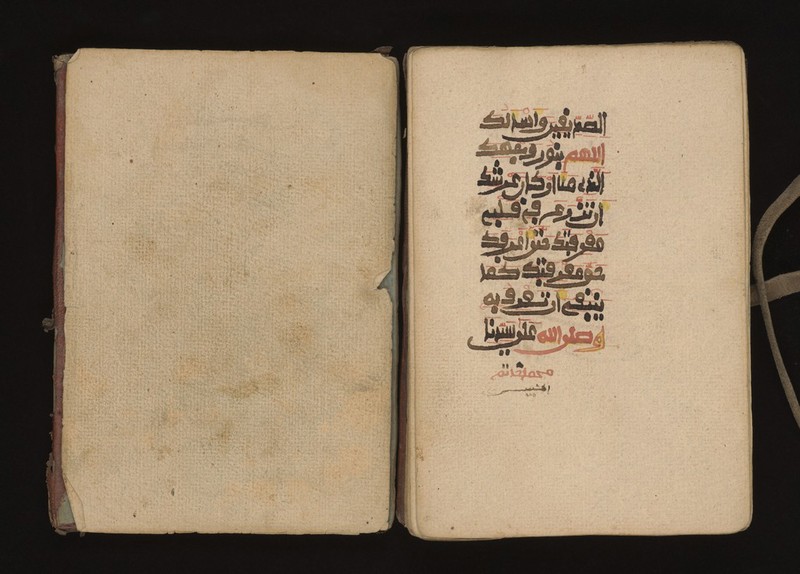 الصديقين واسئلك
اللهم بنور وجهك
الذي ملا اركان عرشك
ان تزرع في قلبي
معرفتك حتى اعرفك
حق معرفتك كما
ينبغي ان تعرف به
وصلى الله على سيدنا
محمد خاتم
النبيين